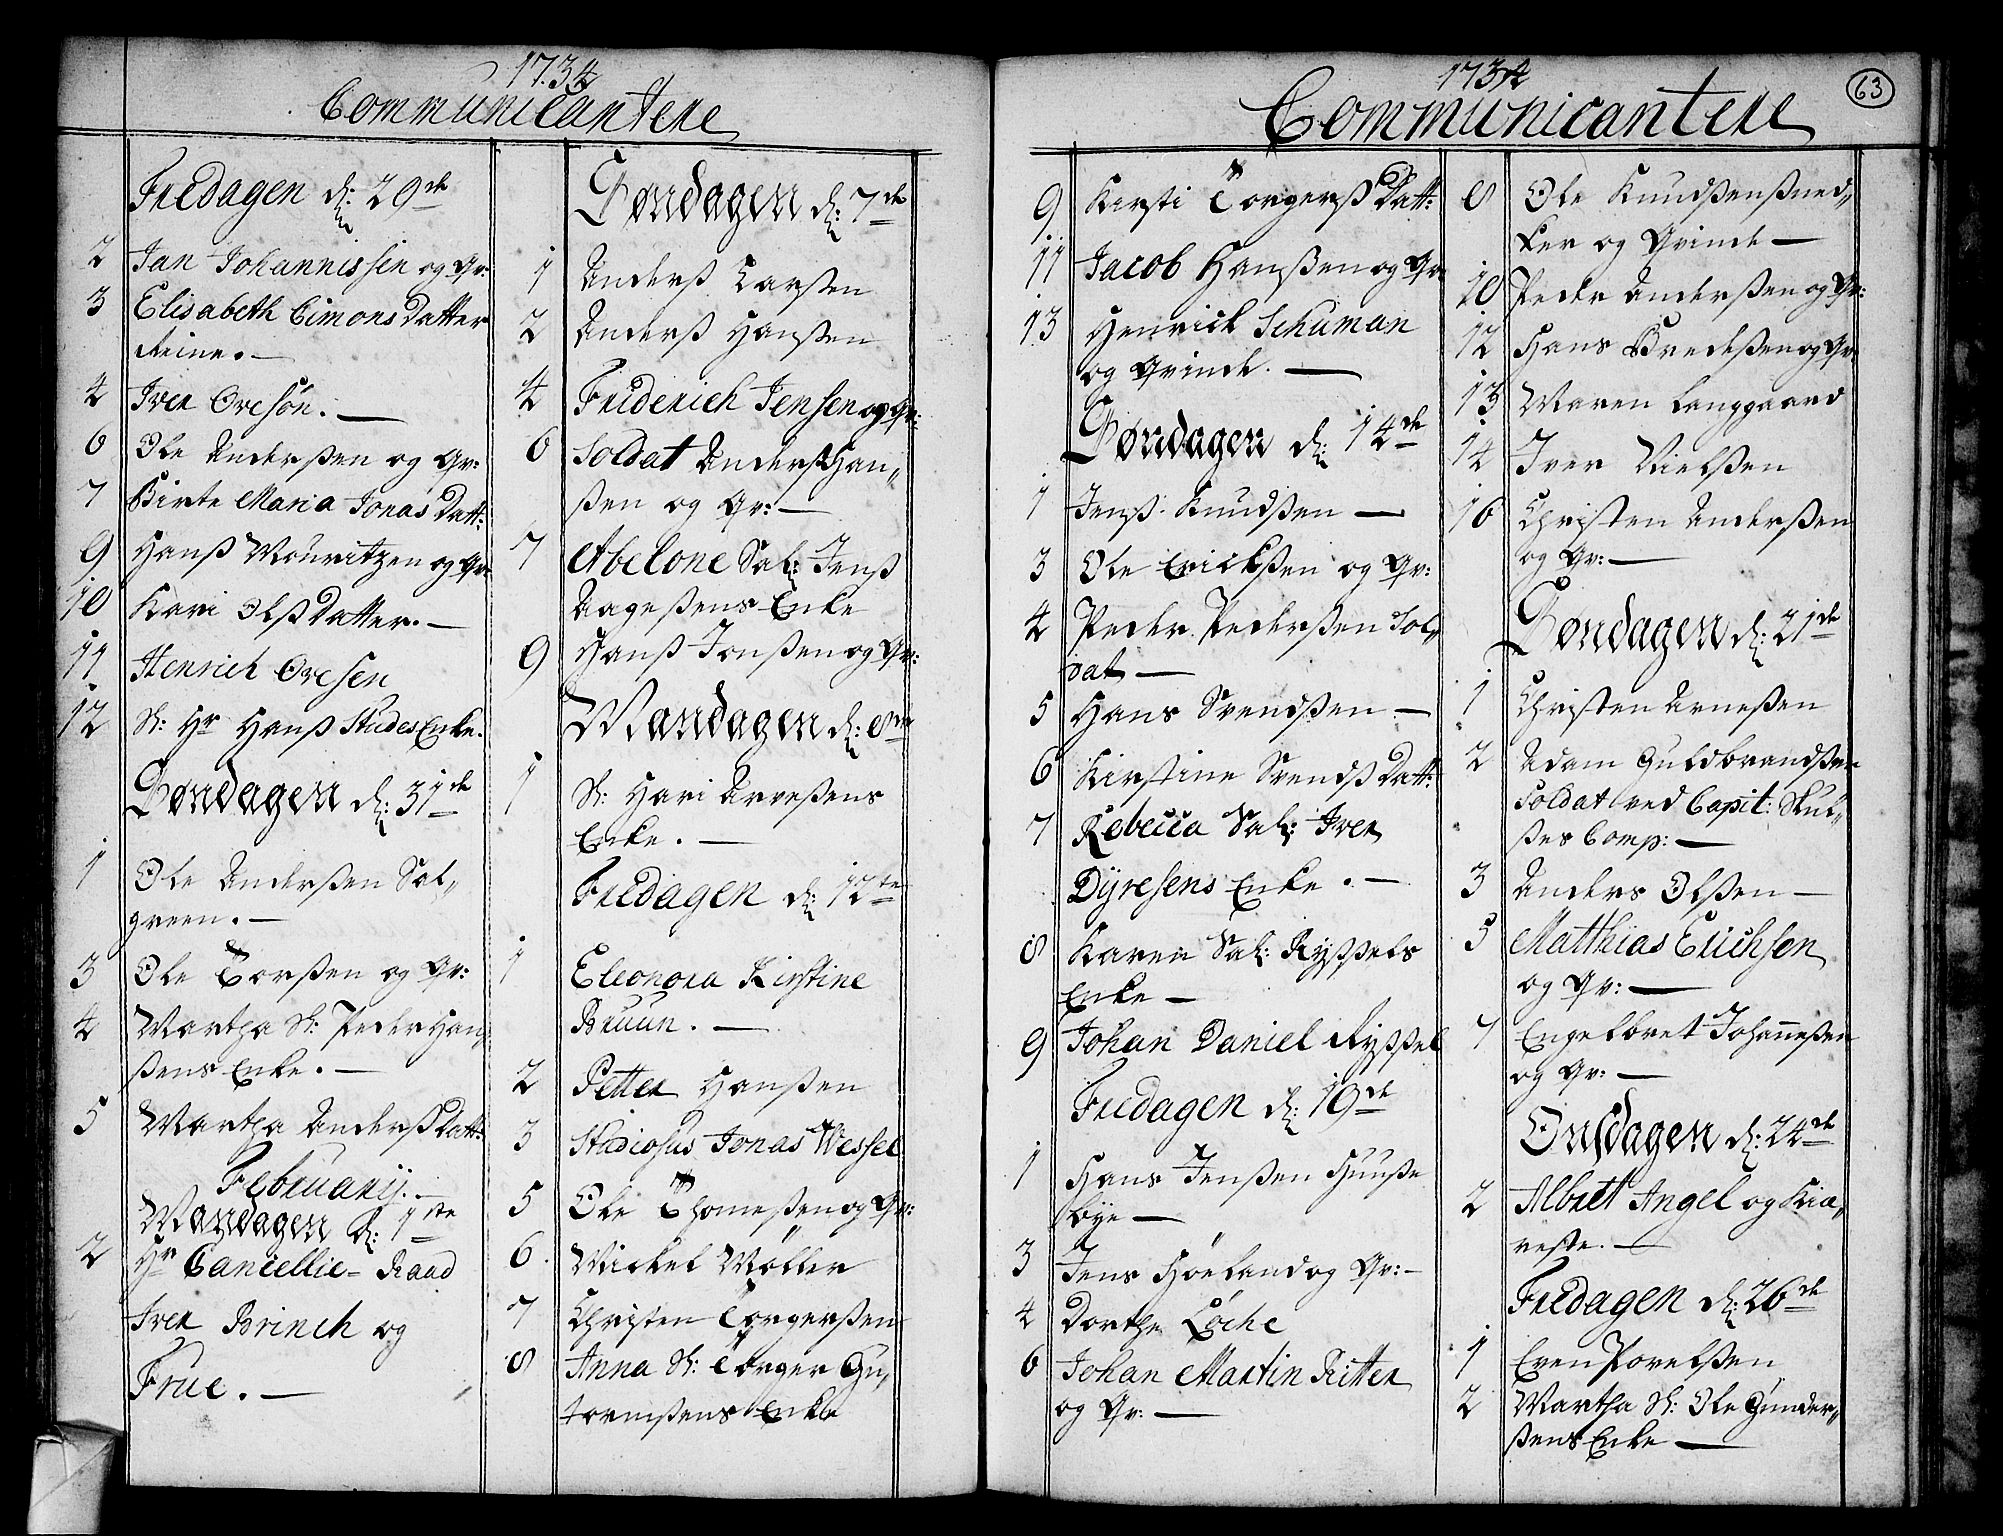 1734
Communicantere
Fredagen d: 29de
2 Jan Johannissen og Qv:
3 Elisabeth Cimons datter
Reine. —
4 Iver Ovesön. —
6 Ole Anderßen og Qv:
7 Birte Maria Jonas Datt:
9 Hanß Mouritzen og Qv:
10 Kari Olß Datter. —
11 Henrich Ovesen
12 Sl: Hr Hanß Studes Enke.
Søndagen d: 31de
1 Ole Anderßen Sol„
green. —
3 Ole Torßen og Qv:
4 Martha Sl: Peder Han„
ßens Enke. —
5 Martha Anderß Datt:
February. —
Mandagen d: 1ste
2 Hr Cancellie-Raad
Iver Brinch og
Frue. —
Søndagen d: 7de
1 Anderß Larßen
2 Anderß Hanßen
4 Friderich Jensen og Qv:
6 Soldat Anderß Han„
ßen og Qv: —
7 Abelone Sal: Jenß
Aageßens Enke
9 Hanß Jonßen og Qv:
Mandagen d: 8de
1 Sl: Hari Arveßens
Enke. —
Fredagen d: 12te
1 Eleonora Kirstine
Bruun. —
2 Petter Hanßen
3 Studiosus Jonas Wessel
5 Ole Thomeßen og Qv:
6 Mickel Møller
7 Christen Torgerßen
8 Anna Sl: Torger Gu„
tormßens Enke
1734
Communicantere
63
9 Kirsti Torgerß Datt:
11 Jacob Hanßen og Qv
13 Henrich Schuman
og Qvinde. —
Søndagen d: 14de
1 Jenß Knudßen —
3 Ole Erickßen og Qv:
4 Peder Pederßen Sol„
dat —
5 Hans Svendßen —
6 Kirstine Svendß Datt:
7 Rebecca Sal: Iver
Dyresens Enke. —
8 Karen Sal: Ryßßels
Enke —
9 Johan Daniel Ryßßel
Fredagen d: 19de
1 Hans Jenßen Huuse
bye —
3 Jens Höeland og Qv: —
4 Dorthe Löche
6 Johan Martin Ritter
og Qv: —
8 Ole Knudßen Sned„
ker og Qvinde —
10 Peder Anderßen og Qv:
12 Hans Bredeßen og Qv
13 Maren Langgaard
14 Iver Nielßen
16 Christen Anderßen
og Qv: —
Søndagen d: 21de
1 Christen Arneßen
2 Adam Guldbrandßen
Soldat ved Capit: Skul„
ßes Comp: —
3 Anders Olßen —
5 Matthias Erichsen
og Qv: —
7 Engelbret Johanneßen
og Qv: —
Onsdagen d: 24de
2 Albret Angel og Kiæ„
reste. —
Fredagen d: 26de
1 Even Povelßen
2 Martha Sl: Ole Gunder„
ßens Enke —